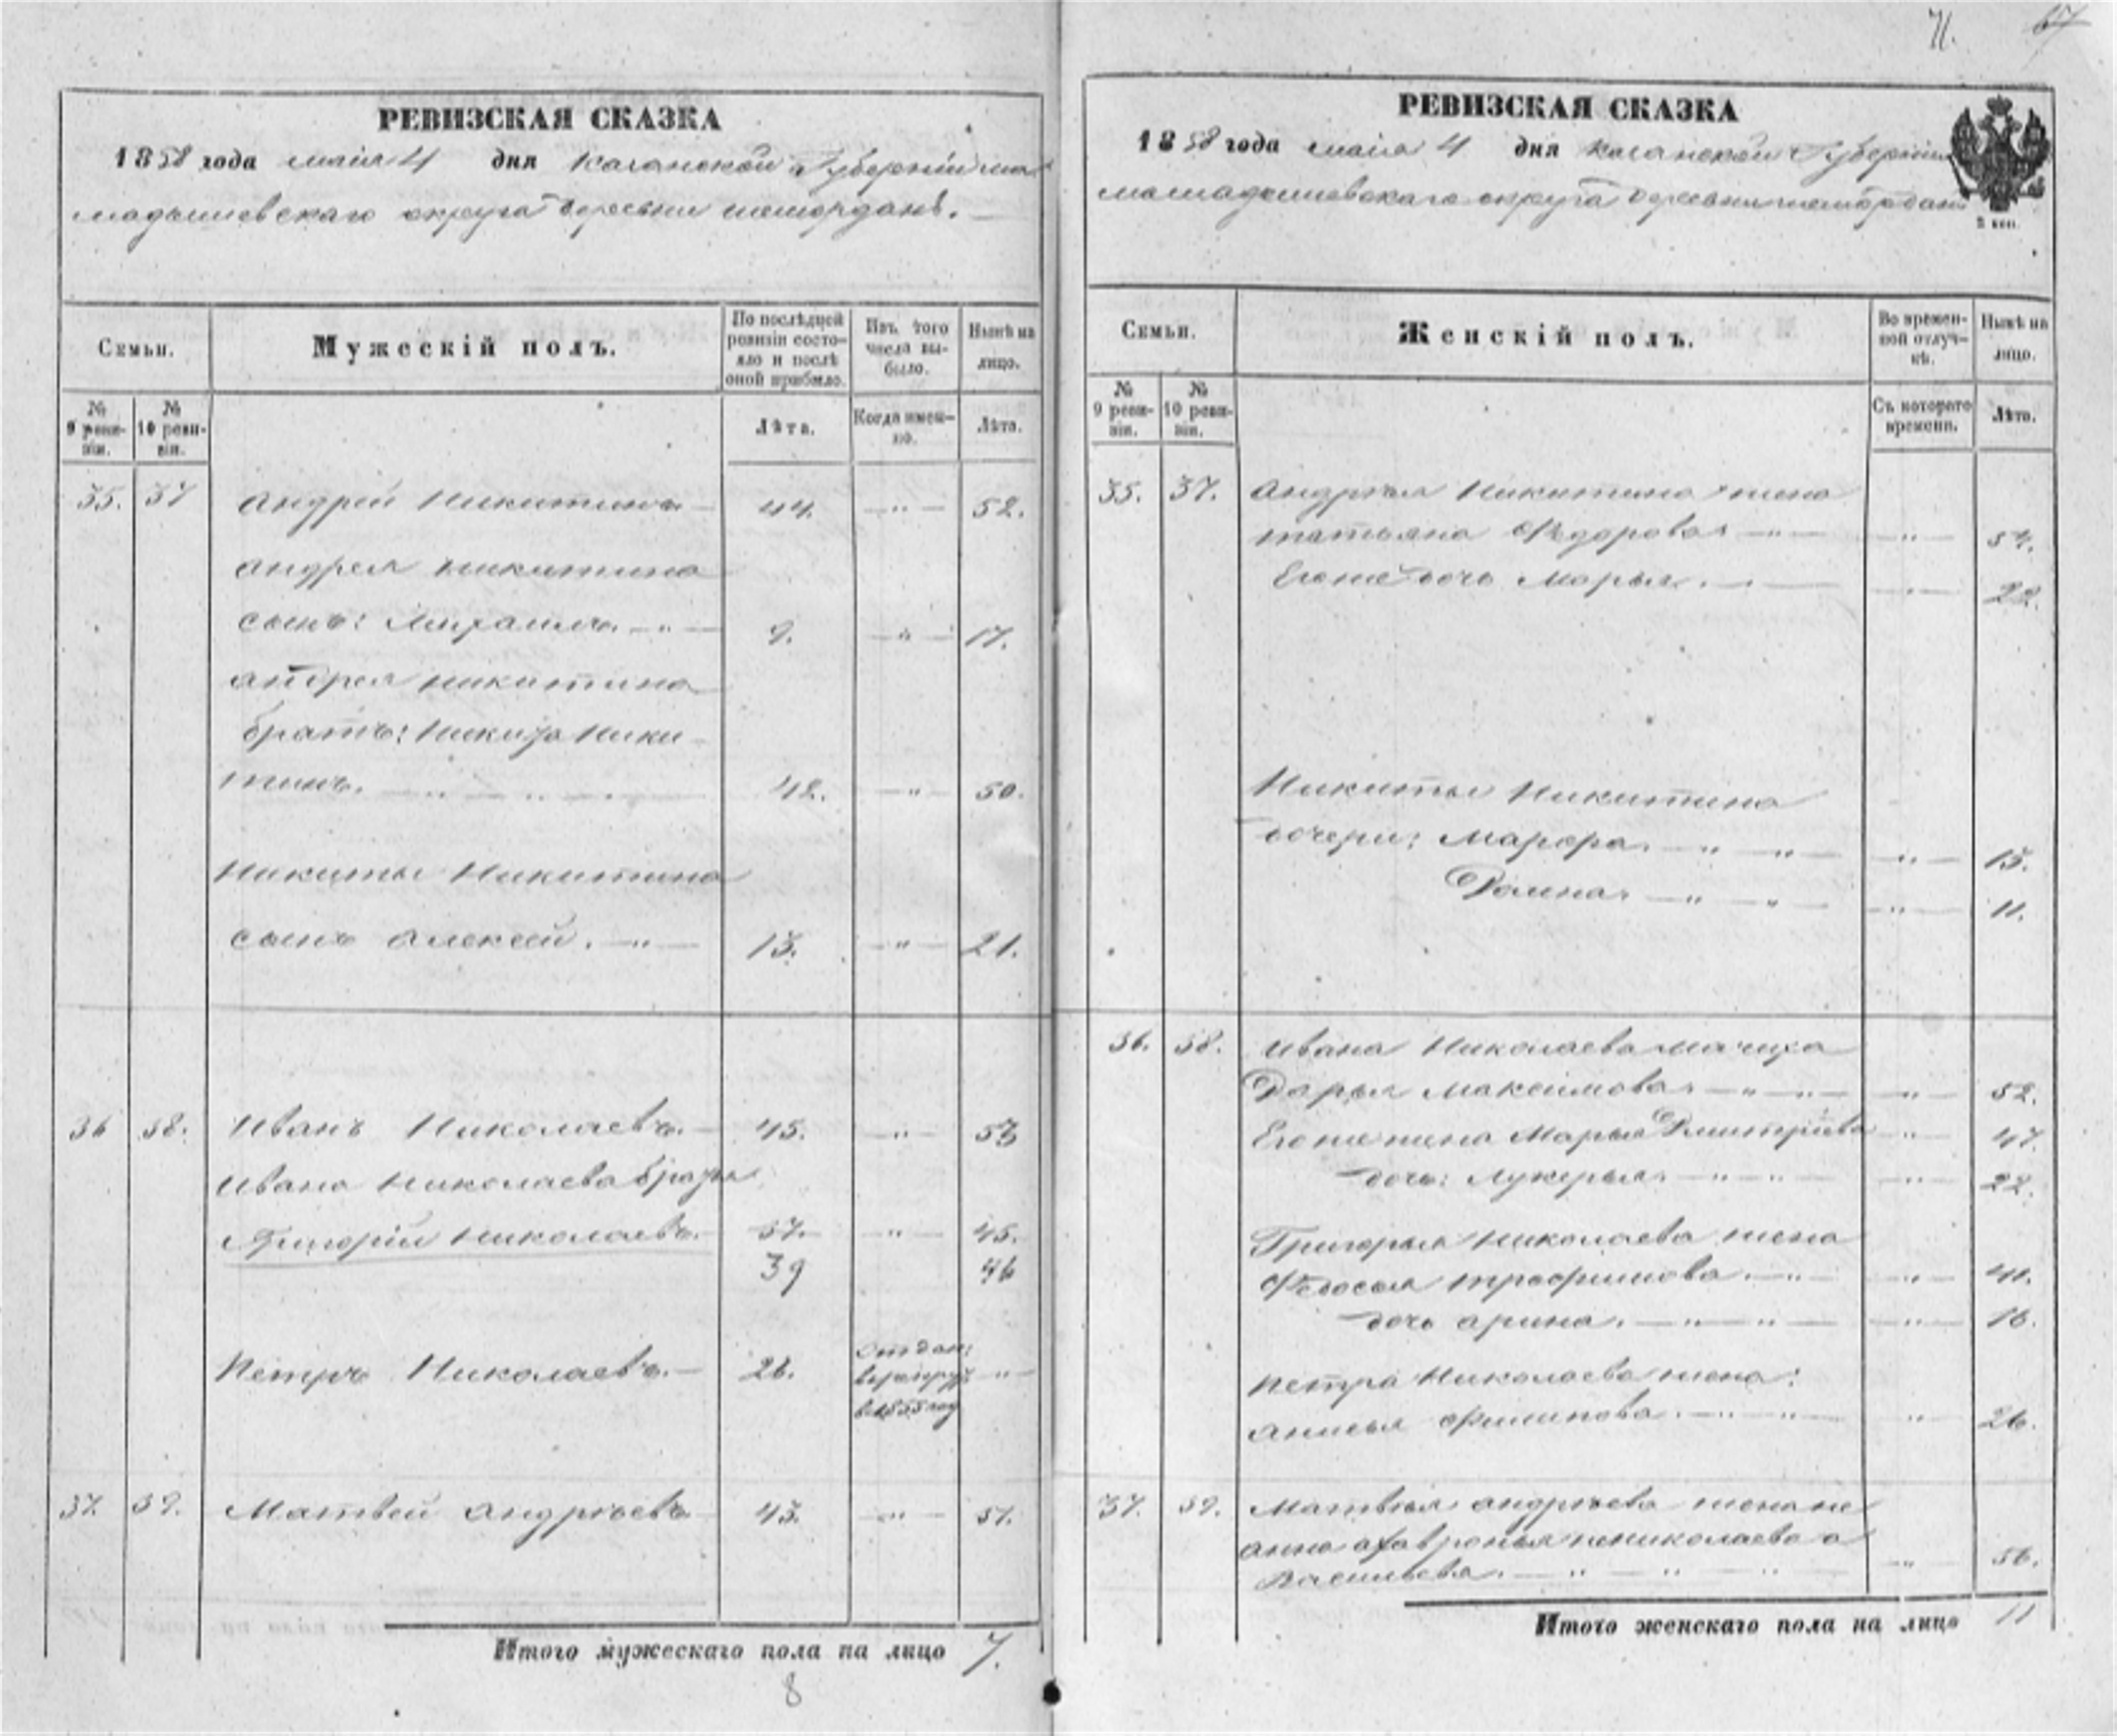 РЕВИЗСКАЯ СКАЗКА
1858 года мая 4 дня Казанской Губернии ма
мадышевскаго округа деревни шемордань.
Семьи.
Мужескій полъ.
По послѣдней ревизіи состояло и послѣ оной прибыло.
Изъ того числа выбыло.
Нынѣ на лицо.
№ 9 ревизіи.
№ 10 ревизіи.
Лѣта.
Когда именно.
Лѣта.
35. 37 Андрей Никитинъ 44. 52.
Андрея Никитина
сынъ: Михаилъ. 9. 17.
Андрея Никитина
братъ: Никита Ники
тинъ. 42. 50.
Никиты Никитина
сынъ Алексей. 13. 21.
36 38. Иванъ Николаевъ. 45. 53
Ивана Николаева братья
Григорій Николаевъ. 37. 45.
39 46
Петръ Николаевъ. 26.
Отдан:
в рекру
в 1855 год
37. 39. Матвей Андрѣевъ 43. 51.
Итого мужескаго пола на лицо 7.
8
71. 67
РЕВИЗСКАЯ СКАЗКА
1858 года мая 4 дня Казанской Губерніи
мамадышевскаго округа деревни шемордань
2 коп.
Семьи.
Женскій полъ.
Во временной отлучкѣ.
Нынѣ на лицо.
№ 9 ревизіи.
№ 10 ревизіи.
Съ котораго времени.
Лѣта.
35. 37. Андрея Никитина жена
татьяна Федорова 54.
Егоже дочь Марья. 22.
Никиты Никитина
дочери: Марфа. 15.
Домна. 11.
36. 38. Ивана Николаева мачиха
Дарья Максимова. 52.
Егоже жена Марья Дмитріева 47.
дочь: Лукерья. 22.
Григорья Николаева жена
Федосья трофимова. 41.
дочь арина. 16.
Петра Николаева жена:
анисья Филипова. 26.
37. 39. Матвѣя андрѣева жена не
анна а Хавронья не николаева а
Васильева. 56.
Итого женскаго пола на лицо 11